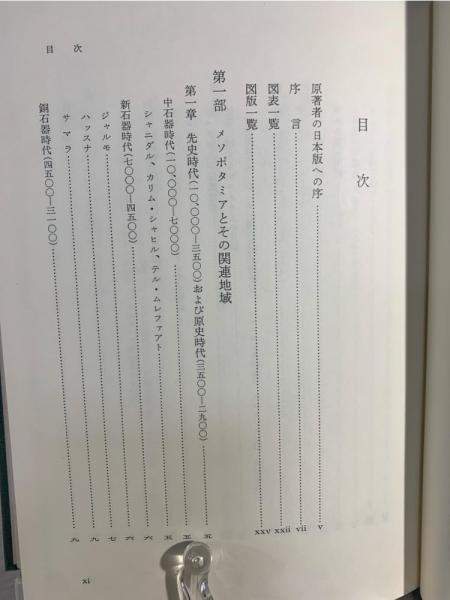 目次
原著者の日本版への序 v
序言 vii
図表一覧 xxii
図版一覧 xxv
第一部 メソポタミアとその関連地域
第一章 先史時代(一〇、〇〇〇—三五〇〇)および原史時代(三五〇〇—二九〇〇) 五
中石器時代(一〇、〇〇〇—七〇〇〇) 五
シャニダル、カリム・シャヒル、テル・ムレファアト 六
新石器時代(七〇〇〇—四五〇〇) 六
ジャルモ 七
ハッスナ 九
サマラ 九
銅石器時代(四五〇〇—三一〇〇)
目次
xi